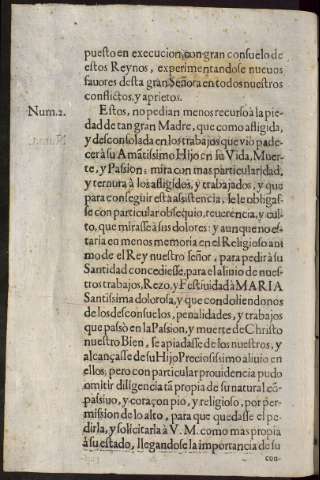 puesto en execucion, con gran consuelo de
estos Reynos, experimentandose nuevos
fauores desta gran Señora en todos nuestros
conflictos, y aprietos.
Num. 2.
Estos, no pedian menos recurso à la pie-
dad de tan gran Madre, que como afligida,
y desconsolada en los trabajos que viò pade-
cer à su Amãtissimo Hijo en su Vida, Muer-
te, y Passion: mira con mas particularidad,
y ternura à los afligidos, y trabajados, y que
para conseguir està assistencia: se le obligas-
se con particular obsequio, reuerencia, y cul-
to, que mirasse à sus dolores: y aunque no es-
taria en menos memoria en el Religioso ani
mo de el Rey nuestro señor, para pedir à su
Santidad concediesse, para el aliuio de nues-
tros trabajos, Rezo, y Festiuidad à MARIA
Santissima dolorosa, y que condoliendonos
de los desconsuelos, penalidades, y trabajos
que passò en la Passion, y muerte de Christo
nuestro Bien, se apiadasse de los nuestros, y
alcançasse de su Hijo Preciosissimo aliuio en
ellos; pero con particular prouidencia pudo
omitir diligencia tã propia de su natural cõ-
passiuo, y coraçon pio, y religioso, por per-
mission de lo alto, para que quedasse el pe-
dirla, y solicitarla à V. M. como mas propia
à su estado, llegandose la importancia de su
con-